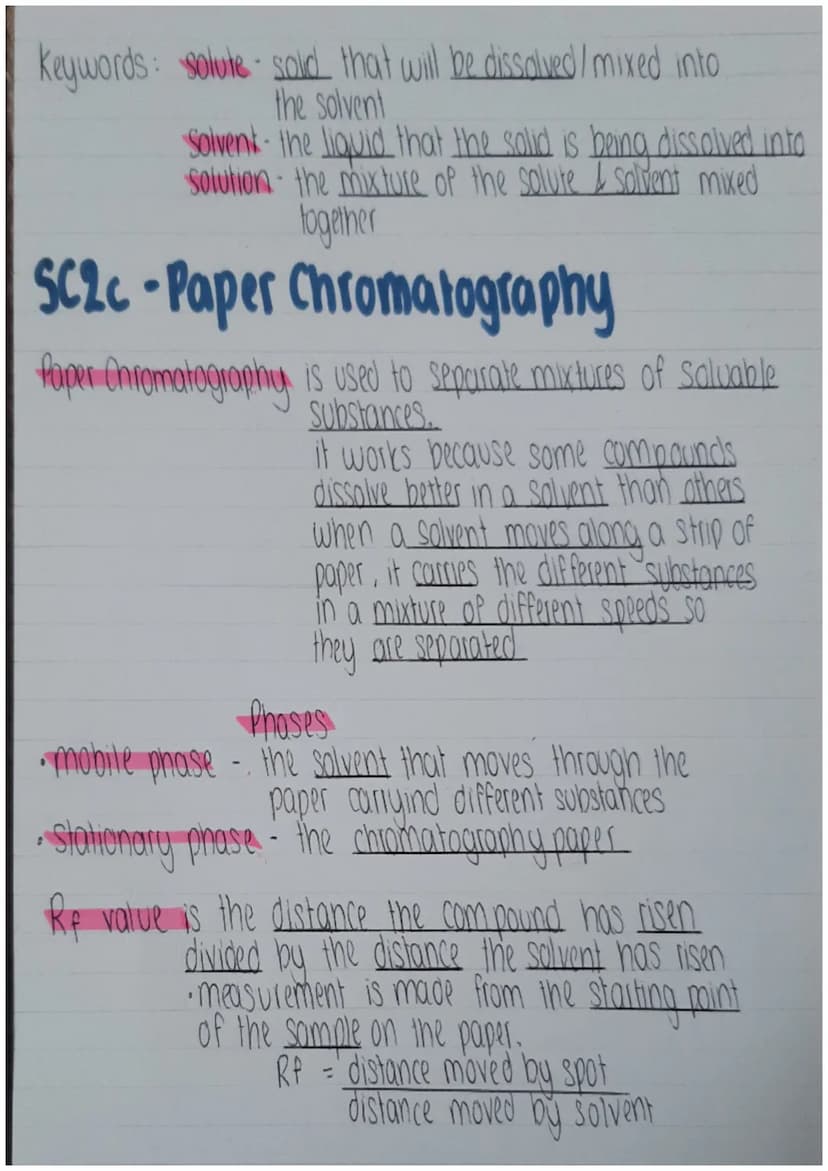 Keywords: solute - solid that will be dissolved/mixed into
the solvent
solvent - the liquid that the solid is being dissolved into
solution - the mixture of the solute & solvent mixed
together
SC2c - Paper Chromatography
Paper Chromatography is used to separate mixtures of soluable
substances.
it works because some compounds
dissolve better in a solvent than others
when a solvent moves along a strip of
paper, it carries the different substances
in a mixture of different speeds so
they are separated
Phases
• mobile phase - the solvent that moves through the
paper carryind different substances
• stationary phase - the chromatography paper
Rf value is the distance the compound has risen
divided by the distance the solvent has risen
• measurement is made from the starting point
of the sample on the paper.
Rf = distance moved by spot
distance moved by solvent